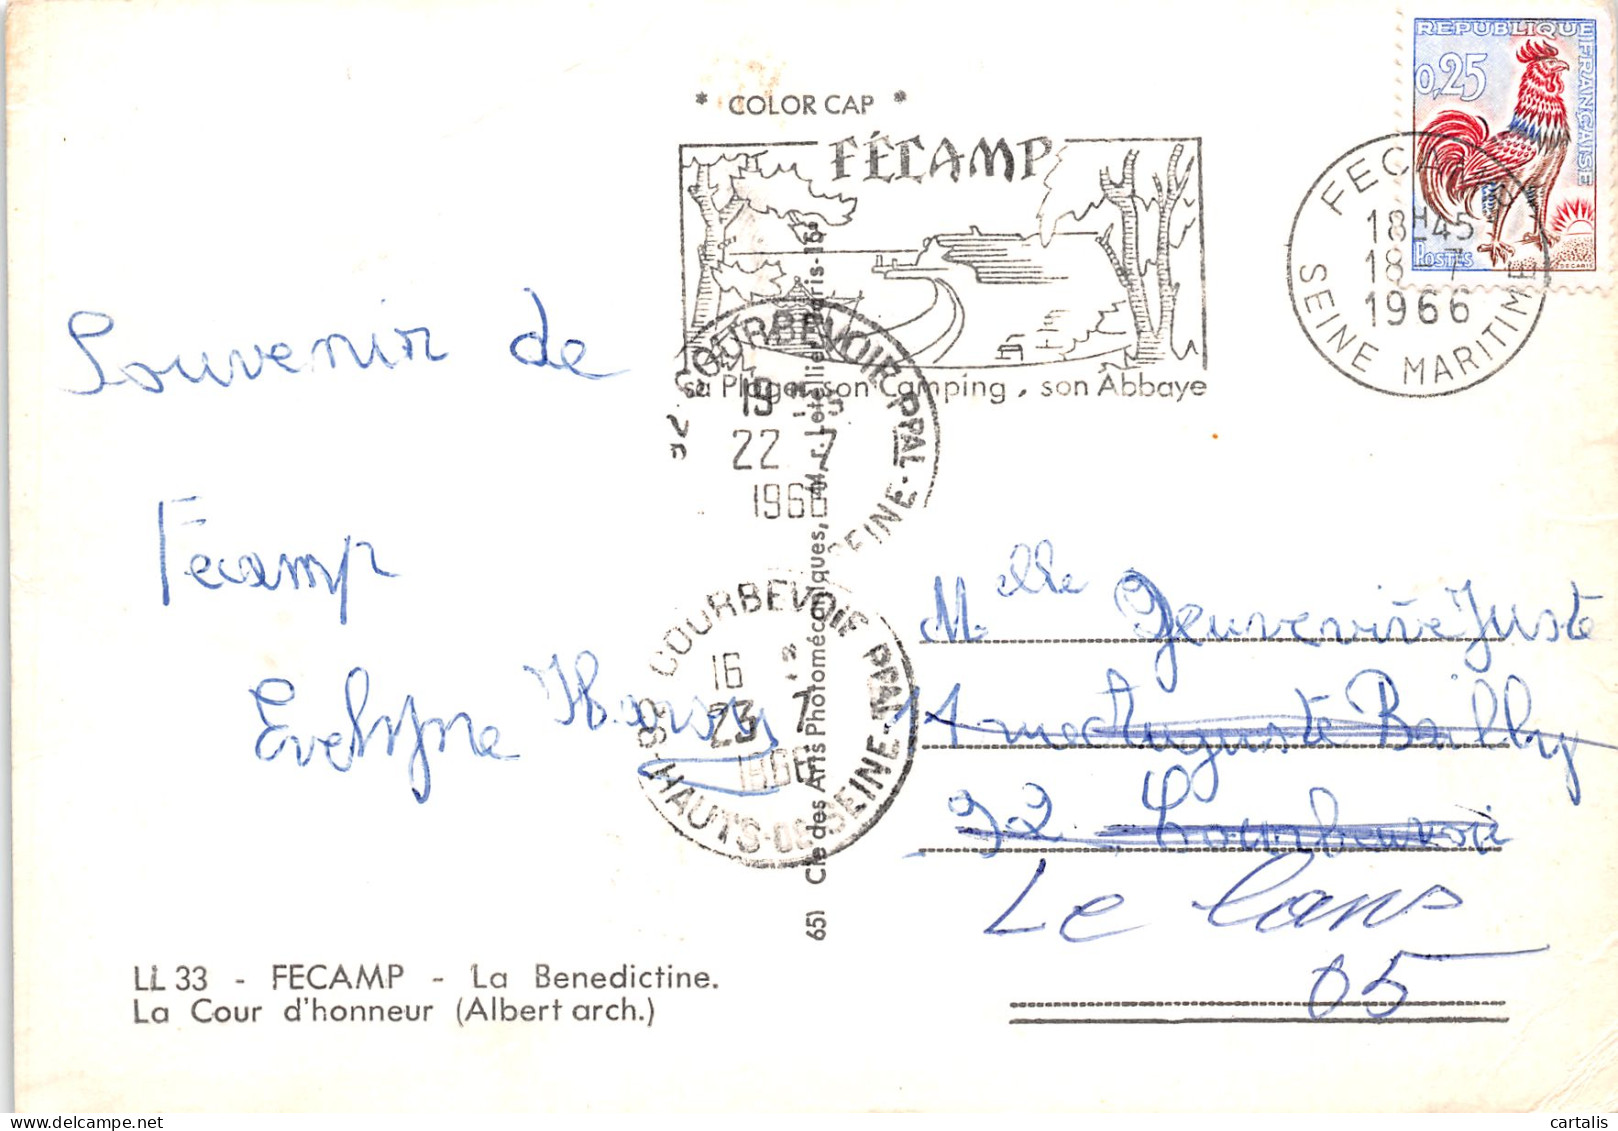 * COLOR CAP *
FÉCAMP
sa Plage, son Camping, son Abbaye
REPUBLIQUE FRANÇAISE
0,25
POSTES
DECARIS
FECAMP
18H45
18-7
1966
SEINE MARITIME
COURBEVOIE PPAL
19
22 7
1966
SEINE
COURBEVOIE PPAL
16
23 7
HAUTS-DE-SEINE
651 Cie des Arts Photomécaniques, M. r. Letellier, Paris-15e
Souvenir de
Fecamp
Evelyne
Melle Genevevive Juste
14 rue Auguste Bailly
92 Courbevoie
Le Cans
05
LL 33 - FECAMP - La Benedictine.
La Cour d'honneur (Albert arch.)